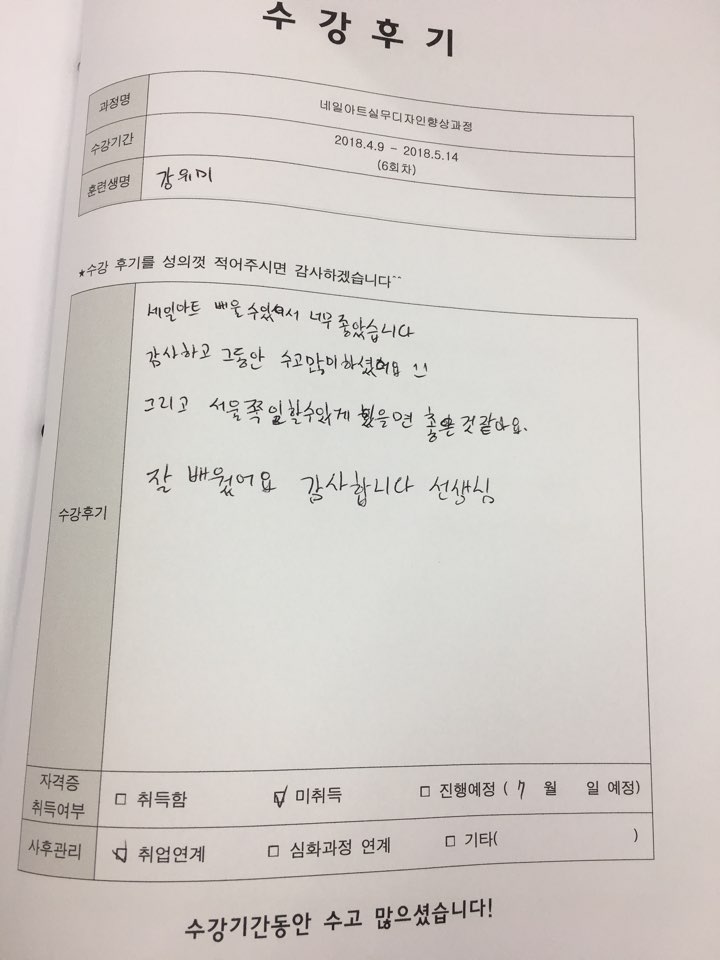 수강후기
과정명 네일아트실무디자인향상과정
수강기간 2018.4.9 - 2018.5.14
(6회차)
훈련생명 강위미
★수강 후기를 성의껏 적어주시면 감사하겠습니다^^
네일아트 배울 수있어서 너무 좋았습니다
감사하고 그동안 수고많이하셨어요
그리고 서울쪽 일할수있게 됬을면 좋은 것 같아요.
잘 배웠어요 감사합니다 선생님
수강후기
자격증
취득여부 □ 취득함 ☑ 미취득 □ 진행예정 ( 7 월 일 예정)
사후관리 ☑ 취업연계 □ 심화과정 연계 □ 기타( )
수강기간동안 수고 많으셨습니다!